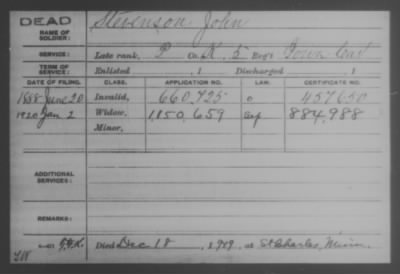 DEAD
NAME OF SOLDIER: Stevenson John
SERVICE: Late rank, P Co. K, 5 Reg't Iowa Cav
TERM OF SERVICE: Enlisted , 1 Discharged 1
DATE OF FILING. CLASS. APPLICATION NO. LAW. CERTIFICATE NO.
1888 June 20 Invalid, 660,425 457650
1920 Jan 2 Widow, 1,150,659 884,988
Minor,
ADDITIONAL SERVICES:
REMARKS:
Died Dec 18, 1919, at St Charles, Minn.